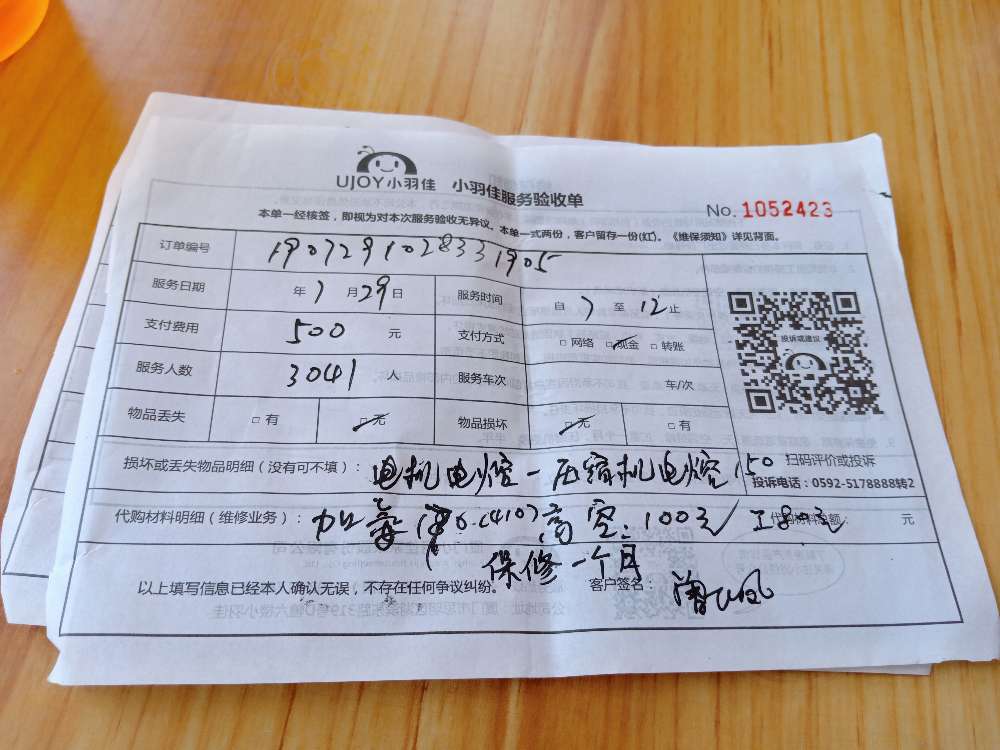 UJOY小羽佳 小羽佳服务验收单
No. 1052423
本单一经核签，即视为对本次服务验收无异议。本单一式两份，客户留存一份(红)。《维保须知》详见背面。
订单编号 1907291028331905
服务日期 年 7 月 29 日 服务时间 自 7 至 12 止
支付费用 500 元 支付方式 □ 网络 □ 现金 □ 转账
服务人数 3041 人 服务车次 车/次
物品丢失 □ 有 □ 无 物品损坏 □ 无 □ 有
投诉或建议
损坏或丢失物品明细（没有可不填）： 电机电熔一压缩机电熔 150
扫码评价或投诉
投诉电话：0592-5178888转2
代购材料明细（维修业务）： 加氟 (410) 高空：100元 工80元 元
保修一个月
以上填写信息已经本人确认无误，不存在任何争议纠纷。 客户签名：